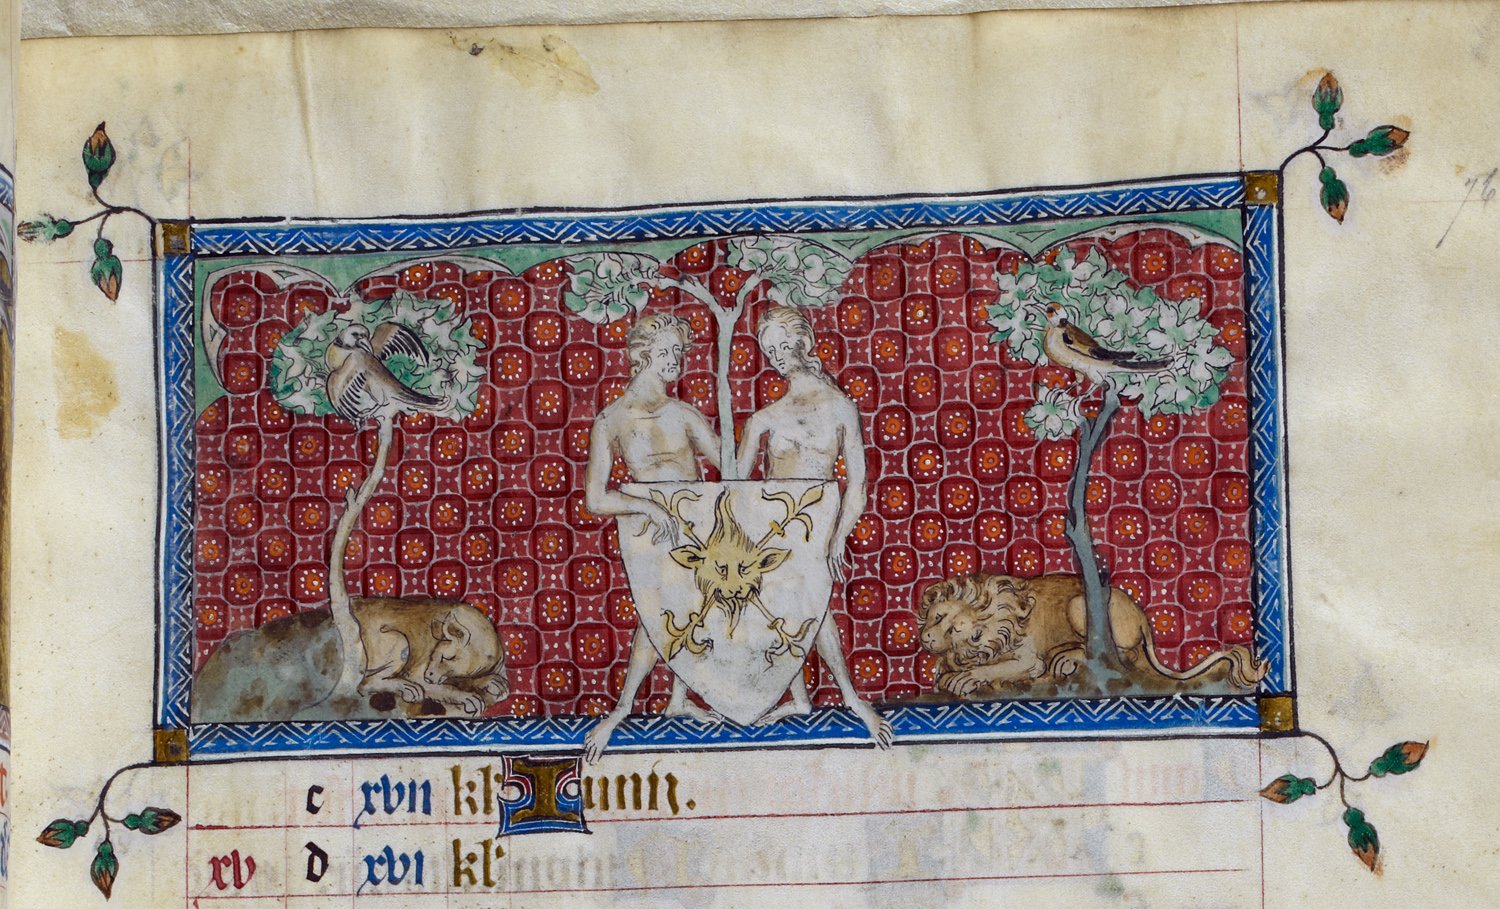 76
c xvii kl' Iunii.
xv d xvi kl'